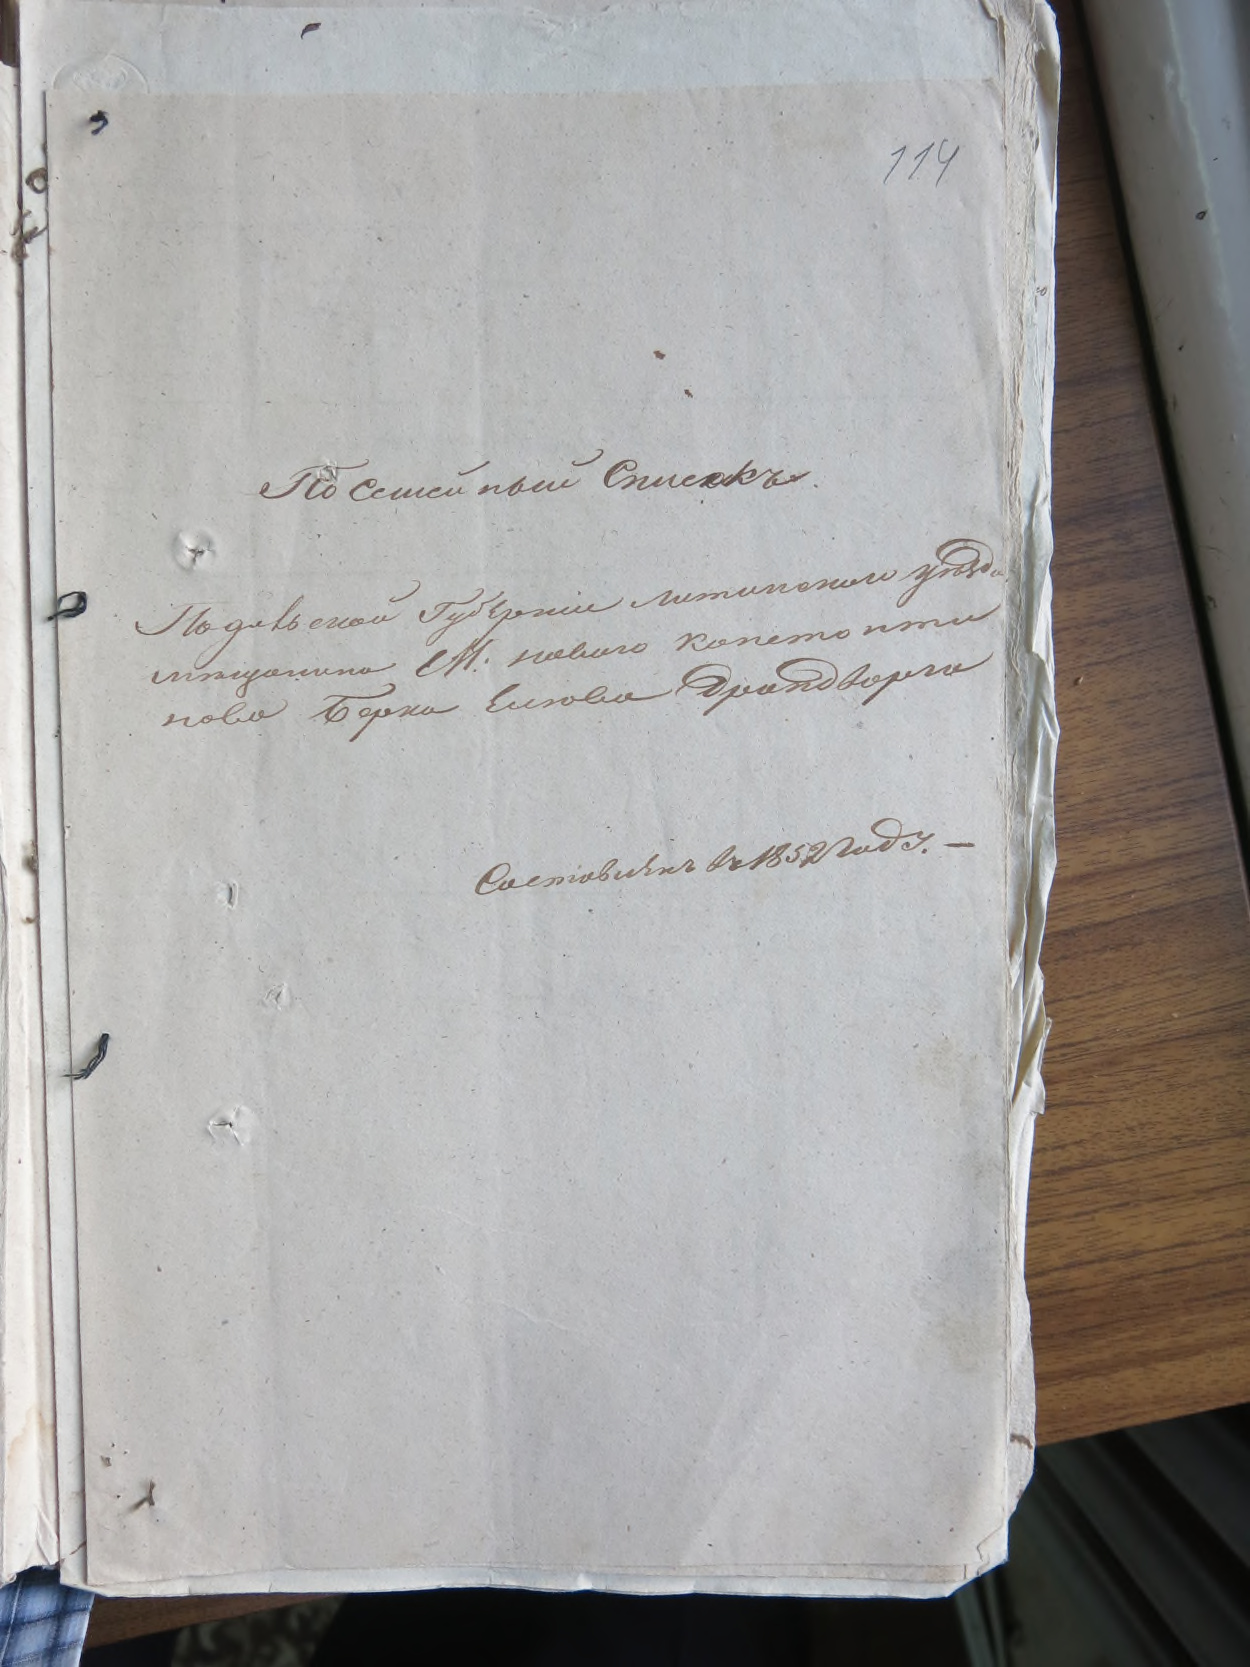 114
Посемейный Списокъ.
Подольской Губерніи Литинского уезда
мещанина М. Новаго Константи
нова Берка Еліова Драндворга
Составленъ въ 1852 Году. —